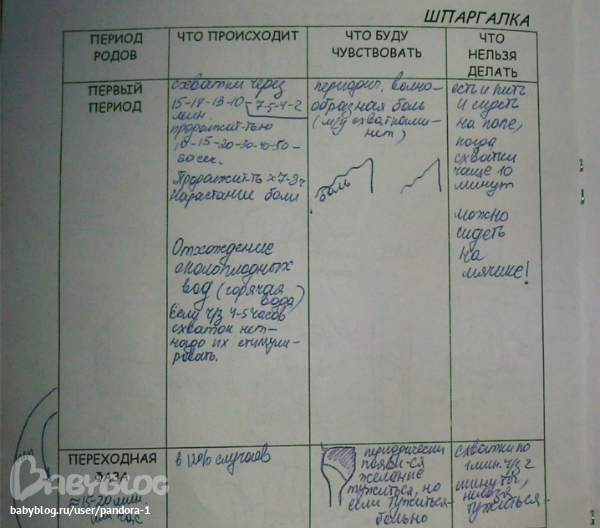 ШПАРГАЛКА
ПЕРИОД
РОДОВ
ЧТО ПРОИСХОДИТ
ЧТО БУДУ
ЧУВСТВОВАТЬ
ЧТО
НЕЛЬЗЯ
ДЕЛАТЬ
ПЕРВЫЙ
ПЕРИОД
схватки через
15-18-13-10-7-5-4-2
мин.
продолжит-тью
-15-20-30-40-50-
60 сек.
Продолжит-ть
Нарастание боли
Отхождение
околоплодных
вод (горячая
вода)
Если ч/з 4-5 часов
схваток нет-
надо их стимули-
ровать.
периодич. волно-
образная боль
(м/у схватками-
нет)
боль
есть и пить
и сидеть
на попе,
когда
схватки
чаще 10
минут
можно
сидеть
на
мячике!
ПЕРЕХОДНАЯ
ФАЗА
≈15-20 мин
или час
в 12% случаев
периодически
появи-ся
желание
тужиться, но
если тужиться-
больно
схватки по
1 мин. ч/з 2
минуты,
нельзя
тужиться
BABYBLOG
babyblog.ru/user/pandora-1